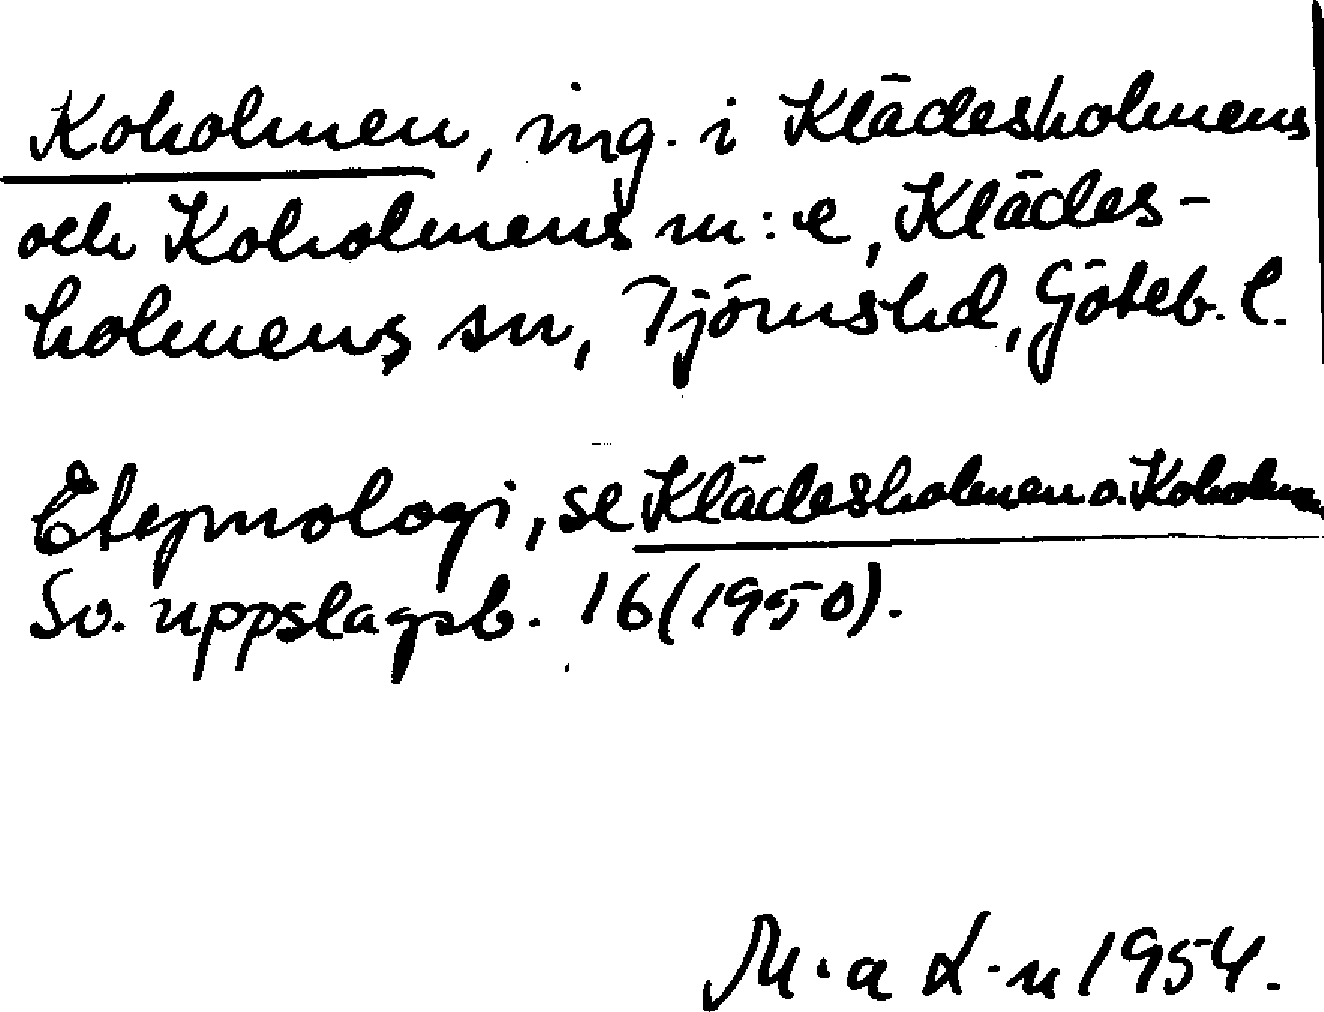 Koholmen, ing. i Klädesholmens
och Koholmens m:e, Klädes-
holmens sn, Tjörnshd, Göteb. l.
Etymologi, se Klädesholmen o. Koholme
Sv. uppslagsb. 16 (1950).
M·a L·n 1954.